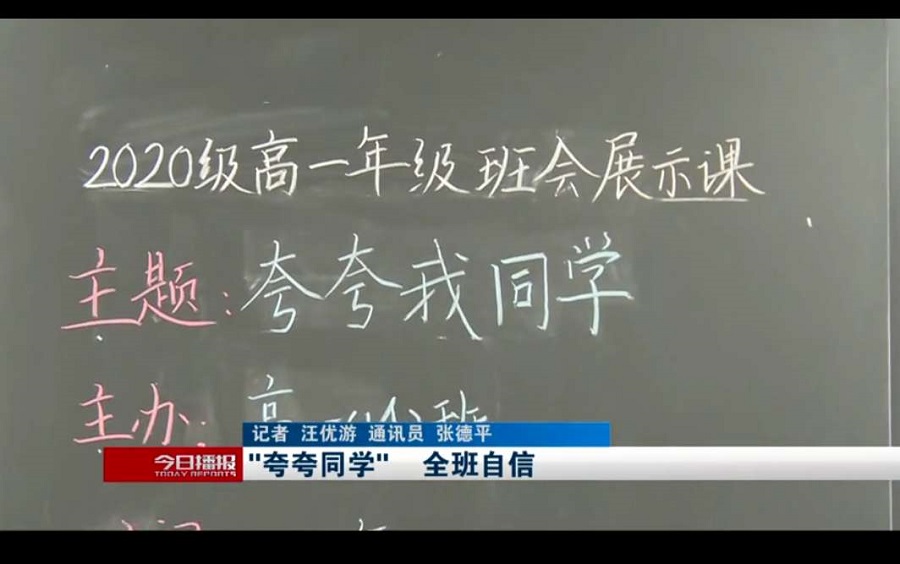 2020级高一年级班会展示课
主题:夸夸我同学
主办:高一
班
记者 汪优游 通讯员 张德平
今日播报
TODAY REPORTS
"夸夸同学" 全班自信